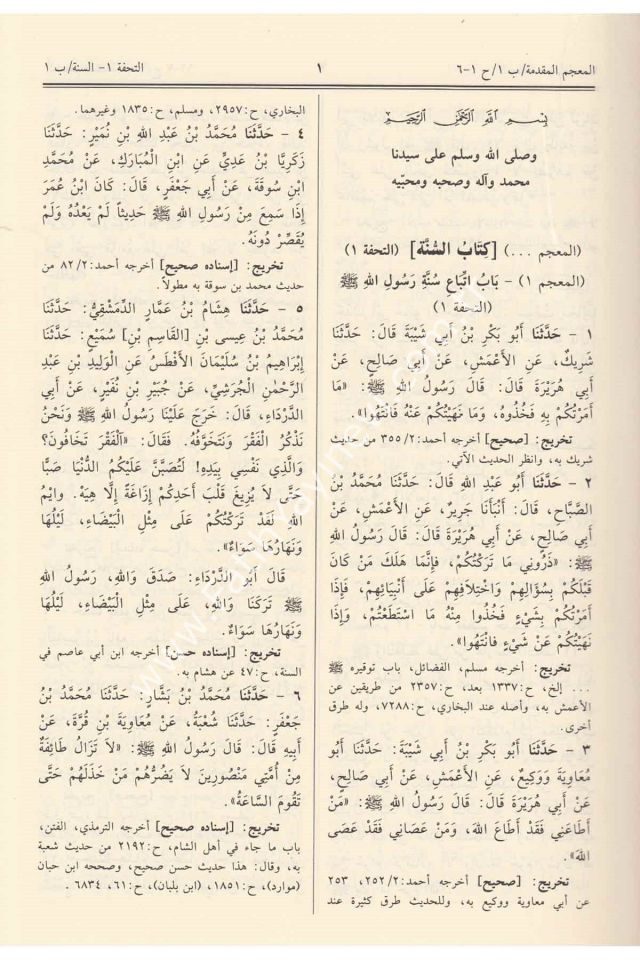 المعجم المقدمة/ ب ١/ ح ١-٦
١
التحفة ١- السنة/ ب ١
بِسْمِ اللهِ الرَّحْمٰنِ الرَّحِيْمِ
وصلى الله وسلم على سيدنا
محمد وآله وصحبه ومحبّيه
(المعجم ...) [كِتَابُ السُّنَّة] (التحفة ١)
(المعجم ١) - بَابُ اتِّبَاعِ سُنَّةِ رَسُولِ اللهِ ﷺ
(التحفة ١)
١ - حَدَّثَنَا أَبُو بَكْرِ بْنُ أَبِي شَيْبَةَ قَالَ: حَدَّثَنَا
شَرِيكٌ، عَنِ الأَعْمَشِ، عَنْ أَبِي صَالِحٍ، عَنْ
أَبِي هُرَيْرَةَ قَالَ: قَالَ رَسُولُ اللهِ ﷺ: «مَا
أَمَرْتُكُمْ بِهِ فَخُذُوهُ، وَمَا نَهَيْتُكُمْ عَنْهُ فَانْتَهُوا».
تخريج: [صحيح] أخرجه أحمد:٢/ ٣٥٥ من حديث
شريك به، وانظر الحديث الآتي.
٢ - حَدَّثَنَا أَبُو عَبْدِ اللهِ قَالَ: حَدَّثَنَا مُحَمَّدُ بْنُ
الصَّبَّاحِ، قَالَ: أَنْبَأَنَا جَرِيرٌ، عَنِ الأَعْمَشِ، عَنْ
أَبِي صَالِحٍ، عَنْ أَبِي هُرَيْرَةَ قَالَ: قَالَ رَسُولُ اللهِ
ﷺ: «ذَرُونِي مَا تَرَكْتُكُمْ، فَإِنَّمَا هَلَكَ مَنْ كَانَ
قَبْلَكُمْ بِسُؤَالِهِمْ وَاخْتِلَافِهِمْ عَلَى أَنْبِيَائِهِمْ، فَإِذَا
أَمَرْتُكُمْ بِشَيْءٍ فَخُذُوا مِنْهُ مَا اسْتَطَعْتُمْ، وَإِذَا
نَهَيْتُكُمْ عَنْ شَيْءٍ فَانْتَهُوا».
تخريج: أخرجه مسلم، الفضائل، باب توقيره ﷺ
... إلخ، ح:١٣٣٧ بعد، ح:٢٣٥٧ من طريقين عن
الأعمش به، وأصله عند البخاري، ح:٧٢٨٨، وله طرق
أخرى.
٣ - حَدَّثَنَا أَبُو بَكْرِ بْنُ أَبِي شَيْبَةَ: حَدَّثَنَا أَبُو
مُعَاوِيَةَ وَوَكِيعٌ، عَنِ الأَعْمَشِ، عَنْ أَبِي صَالِحٍ،
عَنْ أَبِي هُرَيْرَةَ قَالَ: قَالَ رَسُولُ اللهِ ﷺ: «مَنْ
أَطَاعَنِي فَقَدْ أَطَاعَ اللهَ، وَمَنْ عَصَانِي فَقَدْ عَصَى
اللهَ».
تخريج: [صحيح] أخرجه أحمد:٢/ ٢٥٢، ٢٥٣
عن أبي معاوية ووكيع به، وللحديث طرق كثيرة عند
البخاري، ح:٢٩٥٧، ومسلم، ح:١٨٣٥ وغيرهما.
٤ - حَدَّثَنَا مُحَمَّدُ بْنُ عَبْدِ اللهِ بْنِ نُمَيْرٍ: حَدَّثَنَا
زَكَرِيَّا بْنُ عَدِيٍّ عَنِ ابْنِ الْمُبَارَكِ، عَنْ مُحَمَّدِ
ابْنِ سُوقَةَ، عَنْ أَبِي جَعْفَرٍ، قَالَ: كَانَ ابْنُ عُمَرَ
إِذَا سَمِعَ مِنْ رَسُولِ اللهِ ﷺ حَدِيثاً لَمْ يَعْدُهُ وَلَمْ
يُقَصِّرْ دُونَهُ.
تخريج: [إسناده صحيح] أخرجه أحمد:٢/ ٨٢ من
حديث محمد بن سوقة به مطولاً.
٥ - حَدَّثَنَا هِشَامُ بْنُ عَمَّارٍ الدِّمَشْقِيُّ: حَدَّثَنَا
مُحَمَّدُ بْنُ عِيسى بْنِ [القَاسِمِ بْنِ] سُمَيْعٍ: حَدَّثَنَا
إِبْرَاهِيمُ بْنُ سُلَيْمَانَ الأَفْطَسُ عَنِ الْوَلِيدِ بْنِ عَبْدِ
الرَّحْمٰنِ الْجُرَشِيِّ، عَنْ جُبَيْرِ بْنِ نُفَيْرٍ، عَنْ أَبِي
الدَّرْدَاءِ، قَالَ: خَرَجَ عَلَيْنَا رَسُولُ اللهِ ﷺ وَنَحْنُ
نَذْكُرُ الْفَقْرَ وَنَتَخَوَّفُهُ. فَقَالَ: «آلْفَقْرَ تَخَافُونَ؟
وَالَّذِي نَفْسِي بِيَدِهِ! لَتُصَبَّنَّ عَلَيْكُمُ الدُّنْيَا صَبًّا
حَتَّى لَا يُزِيغَ قَلْبَ أَحَدِكُمْ إِزَاغَةً إِلَّا هِيَهْ. وَايْمُ
اللهِ لَقَدْ تَرَكْتُكُمْ عَلَى مِثْلِ الْبَيْضَاءِ، لَيْلُهَا
وَنَهَارُهَا سَوَاءٌ».
قَالَ أَبُو الدَّرْدَاءِ: صَدَقَ وَاللهِ، رَسُولُ اللهِ
ﷺ تَرَكَنَا وَاللهِ، عَلَى مِثْلِ الْبَيْضَاءِ، لَيْلُهَا
وَنَهَارُهَا سَوَاءٌ.
تخريج: [إسناده حسن] أخرجه ابن أبي عاصم في
السنة، ح:٤٧ عن هشام به.
٦ - حَدَّثَنَا مُحَمَّدُ بْنُ بَشَّارٍ: حَدَّثَنَا مُحَمَّدُ بْنُ
جَعْفَرٍ: حَدَّثَنَا شُعْبَةُ، عَنْ مُعَاوِيَةَ بْنِ قُرَّةَ، عَنْ
أَبِيهِ قَالَ: قَالَ رَسُولُ اللهِ ﷺ: «لَا تَزَالُ طَائِفَةٌ
مِنْ أُمَّتِي مَنْصُورِينَ لَا يَضُرُّهُمْ مَنْ خَذَلَهُمْ حَتَّى
تَقُومَ السَّاعَةُ».
تخريج: [إسناده صحيح] أخرجه الترمذي، الفتن،
باب ما جاء في أهل الشام، ح:٢١٩٢ من حديث شعبة
به، وقال: هذا حديث حسن صحيح، وصححه ابن حبان
(موارد)، ح:١٨٥١، (ابن بلبان)، ح:٦١، ٦٨٣٤ .